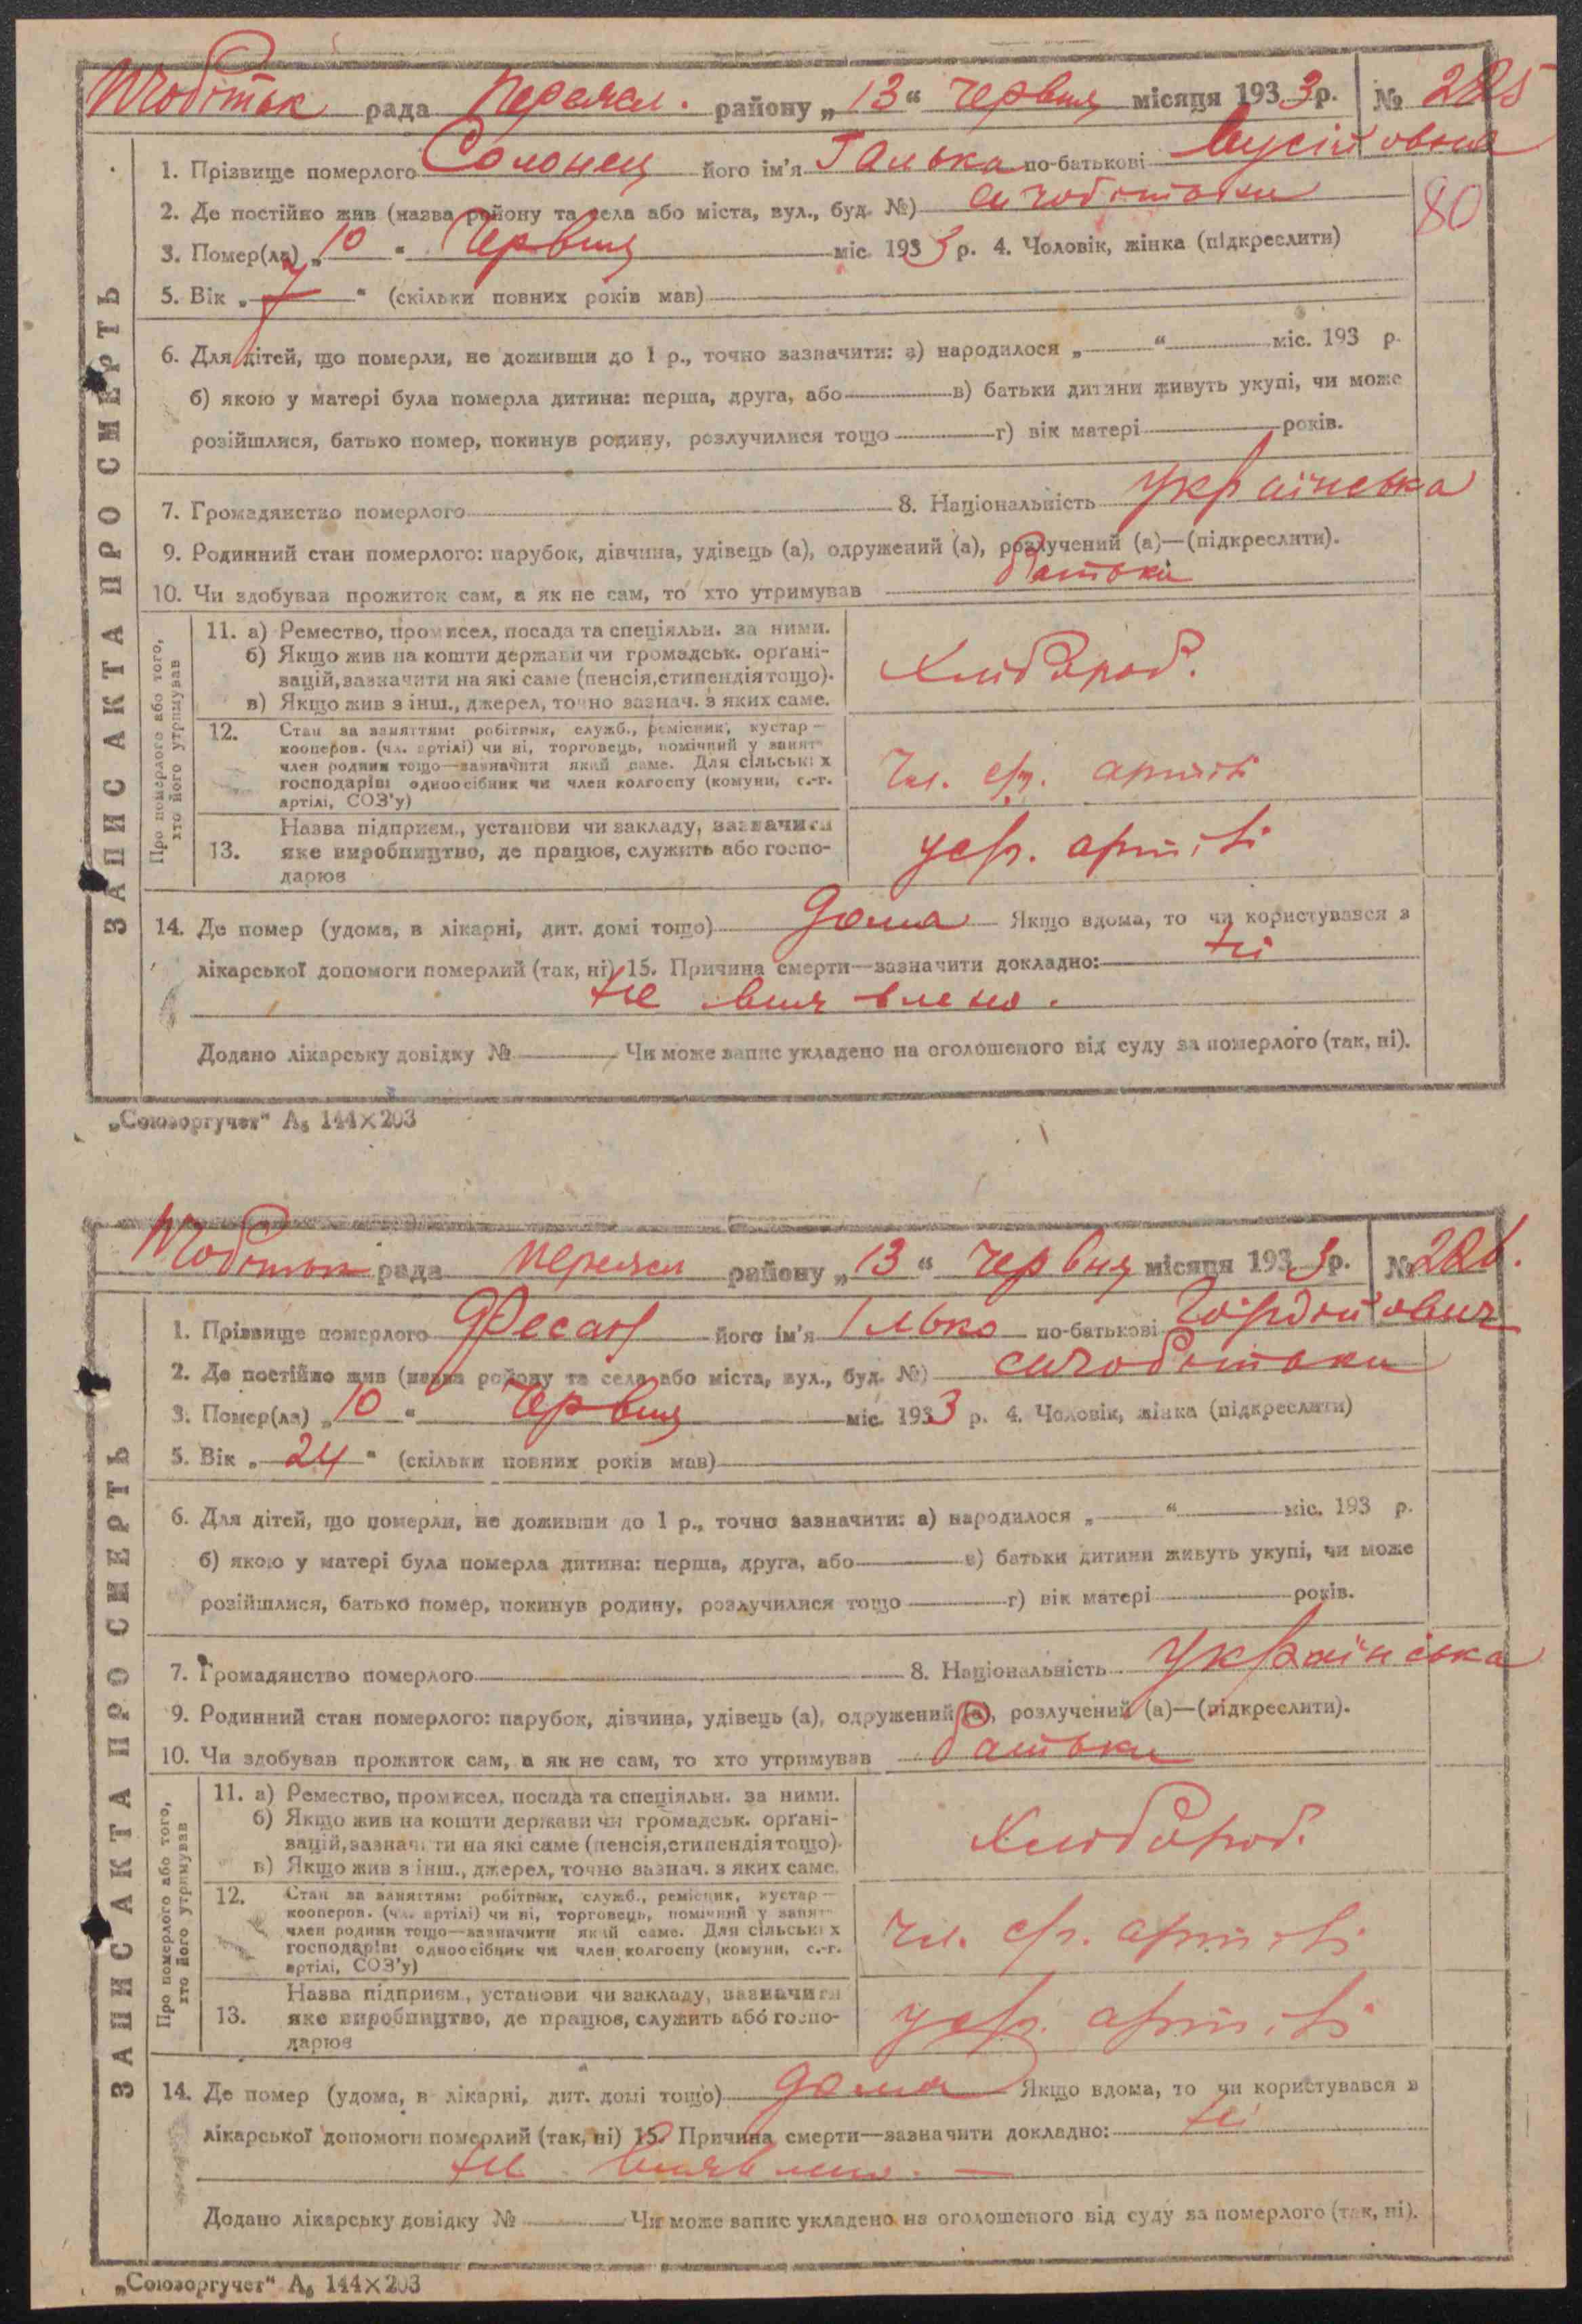 Чобітьк рада Переясл. району „13“ червня місяця 1933 р. № 225
1. Прізвище померлого Солонец його ім'я Галька по-батькові Вусійовна
2. Де постійно жив (назва району та села або міста, вул., буд. №)
80
3. Помер(ла) „10“ червня міс. 1933 р. 4. Чоловік, жінка (підкреслити)
5. Вік „7“ (скільки повних років мав)
6. Для дітей, що померли, не доживши до 1 р., точно зазначити: а) народилося „ “ міс. 193 р.
б) якою у матері була померла дитина: перша, друга, або в) батьки дитини живуть укупі, чи може
розійшлися, батько помер, покинув родину, розлучилися тощо г) вік матері років.
7. Громадянство померлого 8. Національність українська
9. Родинний стан померлого: парубок, дівчина, удівець (а), одружений (а), розлучений (а)—(підкреслити).
10. Чи здобував прожиток сам, а як не сам, то хто утримував батьки
ЗАПИС АКТА ПРО СМЕРТЬ
Про померлого або того,
хто його утримував
11. а) Ремество, промисел, посада та спеціяльн. за ними.
б) Якщо жив на кошти держави чи громадськ. орґані-
зацій, зазначити на які саме (пенсія, стипендія тощо).
в) Якщо жив з інш., джерел, точно зазнач. з яких саме.
Хлібороб.
12. Стан за заняттям: робітник, служб., ремісник, кустар—
кооперов. (чл. артілі) чи ні, торговець, помічний у занят-
член родини тощо—зазначити який саме. Для сільських
господарів: одноосібник чи член колгоспу (комуни, с.-г.
артілі, СОЗ'у)
Чл. с/г. артілі
13. Назва підприєм., установи чи закладу, зазначити
яке виробництво, де працює, служить або госпо-
дарює
у с/г. артілі
14. Де помер (удома, в лікарні, дит. домі тощо) дома Якщо вдома, то чи користувався з
лікарської допомоги померлий (так, ні) 15. Причина смерти—зазначити докладно: ні
не виявлено.
Додано лікарську довідку № Чи може запис укладено на оголошеного від суду за померлого (так, ні).
„Союзоргучет“ А₅ 144×203
Чобітьк рада Переясл району „13“ червня місяця 1933 р. № 226.
1. Прізвище померлого Фесан його ім'я Ілько по-батькові Гордійович
2. Де постійно жив (назва району та села або міста, вул., буд. №)
3. Помер(ла) „10“ червня міс. 1933 р. 4. Чоловік, жінка (підкреслити)
5. Вік „24“ (скільки повних років мав)
6. Для дітей, що померли, не доживши до 1 р., точно зазначити: а) народилося „ “ міс. 193 р.
б) якою у матері була померла дитина: перша, друга, або в) батьки дитини живуть укупі, чи може
розійшлися, батько помер, покинув родину, розлучилися тощо г) вік матері років.
7. Громадянство померлого 8. Національність українська
9. Родинний стан померлого: парубок, дівчина, удівець (а), одружений (а), розлучений (а)—(підкреслити).
10. Чи здобував прожиток сам, а як не сам, то хто утримував батьки
ЗАПИС АКТА ПРО СМЕРТЬ
Про померлого або того,
хто його утримував
11. а) Ремество, промисел, посада та спеціяльн. за ними.
б) Якщо жив на кошти держави чи громадськ. орґані-
зацій, зазначити на які саме (пенсія, стипендія тощо).
в) Якщо жив з інш., джерел, точно зазнач. з яких саме.
Хлібороб.
12. Стан за заняттям: робітник, служб., ремісник, кустар—
кооперов. (чл. артілі) чи ні, торговець, помічний у занят-
член родини тощо—зазначити який саме. Для сільських
господарів: одноосібник чи член колгоспу (комуни, с.-г.
артілі, СОЗ'у)
Чл. с/г. артілі
13. Назва підприєм., установи чи закладу, зазначити
яке виробництво, де працює, служить або госпо-
дарює
у с/г. артілі
14. Де помер (удома, в лікарні, дит. домі тощо) дома Якщо вдома, то чи користувався з
лікарської допомоги померлий (так, ні) 15. Причина смерти—зазначити докладно: ні
не виявлено. —
Додано лікарську довідку № Чи може запис укладено на оголошеного від суду за померлого (так, ні).
„Союзоргучет“ А₅ 144×203